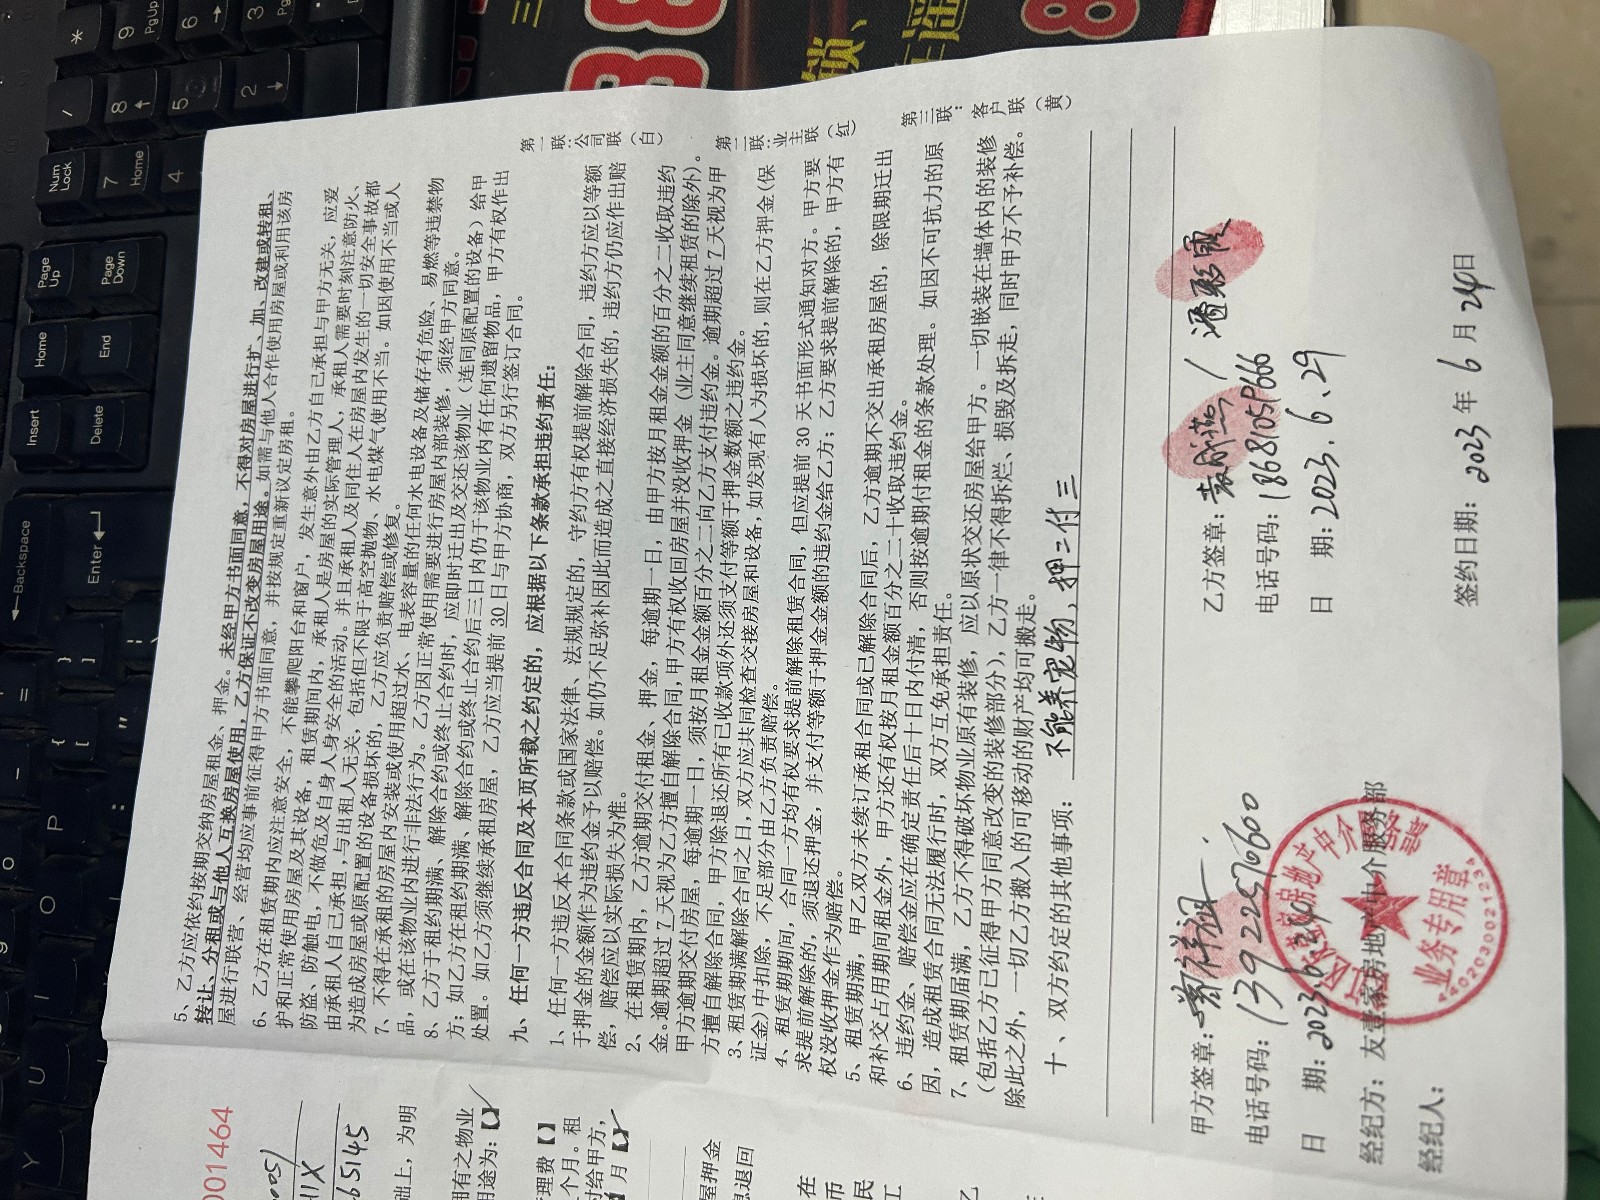 5、乙方应依约按期交纳房屋租金、押金。未经甲方书面同意，不得对房屋进行扩、加、改建或转租、
转让、分租或与他人互换房屋使用，乙方保证不改变房屋用途。如需与他人合作使用房屋或利用该房
屋进行联营、经营均应事前征得甲方书面同意，并按规定重新议定房租。
6、乙方在租赁期内应注意安全，不能攀爬阳台和窗户，发生意外由乙方自己承担与甲方无关，应爱
护和正常使用房屋及其设备，租赁期间内，承租人是房屋的实际管理人，承租人需要时刻注意防火、
防盗、防触电，不做危及自身人身安全的活动。并且承租人及同住人在房屋内发生的一切安全事故都
由承租人自己承担，与出租人无关，包括但不限于高空抛物、水电煤气使用不当。如因使用不当或人
为造成房屋或原配置的设备损坏的，乙方应负责赔偿或修复。
7、不得在承租的房屋内安装或使用超过水、电表容量的任何水电设备及储存有危险、易燃等违禁物
品，或在该物业内进行非法行为。乙方因正常使用需要进行房屋内部装修，须经甲方同意。
8、乙方于租约期满、解除合约或终止合约时，应即时迁出及交还该物业（连同原配置的设备）给甲
方；如乙方在租约期满、解除合约或终止合约后三日内仍于该物业内有任何遗留物品，甲方有权作出
处置。如乙方须继续承租房屋，乙方应当提前 30 日与甲方协商，双方另行签订合同。
九、任何一方违反合同及本页所载之约定的，应根据以下条款承担违约责任：
1、任何一方违反本合同条款或国家法律、法规规定的，守约方有权提前解除合同，违约方应以等额
于押金的金额作为违约金予以赔偿。如仍不足弥补因此而造成之直接经济损失的，违约方仍应作出赔
偿，赔偿应以实际损失为准。
2、在租赁期内，乙方逾期交付租金、押金，每逾期一日，由甲方按月租金金额的百分之二收取违约
金。逾期超过 7 天视为乙方擅自解除合同，甲方有权收回房屋并没收押金（业主同意继续租赁的除外）。
甲方逾期交付房屋，每逾期一日，须按月租金金额百分之二向乙方支付违约金。逾期超过 7 天视为甲
方擅自解除合同，甲方除退还所有已收款项外还须支付等额于押金数额之违约金。
3、租赁期满解除合同之日，双方应共同检查交接房屋和设备，如发现有人为损坏的，则在乙方押金（保
证金）中扣除，不足部分由乙方负责赔偿。
4、租赁期期间，合同一方均有权要求提前解除租赁合同，但应提前 30 天书面形式通知对方。甲方要
求提前解除的，须退还押金，并支付等额于押金金额的违约金给乙方；乙方要求提前解除的，甲方有
权没收押金作为赔偿。
5、租赁期满，甲乙双方未续订承租合同或已解除合同后，乙方逾期不交出承租房屋的，除限期迁出
和补交占用期间租金外，甲方还有权按月租金额百分之二十收取违约金。
6、违约金、赔偿金应在确定责任后十日内付清，否则按逾期付租金的条款处理。如因不可抗力的原
因，造成租赁合同无法履行时，双方互免承担责任。
7、租赁期届满，乙方不得破坏物业原有装修，应以原状交还房屋给甲方。一切嵌装在墙体内的装修
（包括乙方已征得甲方同意改变的装修部分），乙方一律不得拆烂、损毁及拆走，同时甲方不予补偿。
除此之外，一切乙方搬入的可移动的财产均可搬走。
十、双方约定的其他事项：不能养宠物，押二付三
第一联：公司联（白）
第二联：业主联（红）
第三联：客户联（黄）
甲方签章：
电话号码：13922257600
日 期：2023.6.24
经纪方：友壹家房地产中介服务部
经纪人：
乙方签章：
电话号码：
日 期：2023.6.29
签约日期：2023 年 6 月 24日
房地产中介服务部
业务专用章
4402030021234
001464
65145
础上，为明
拥有之物业
用途为：【✓】
管理费【 】
个月。租
付给甲方，
月【✓】
屋押金
息退回
Num Lock
/
*
7 Home
8
9 PgUp
4
5
6
2
3
Page Up
Page Down
Home
End
Insert
Delete
Backspace
Enter
Y
U
I
O
P